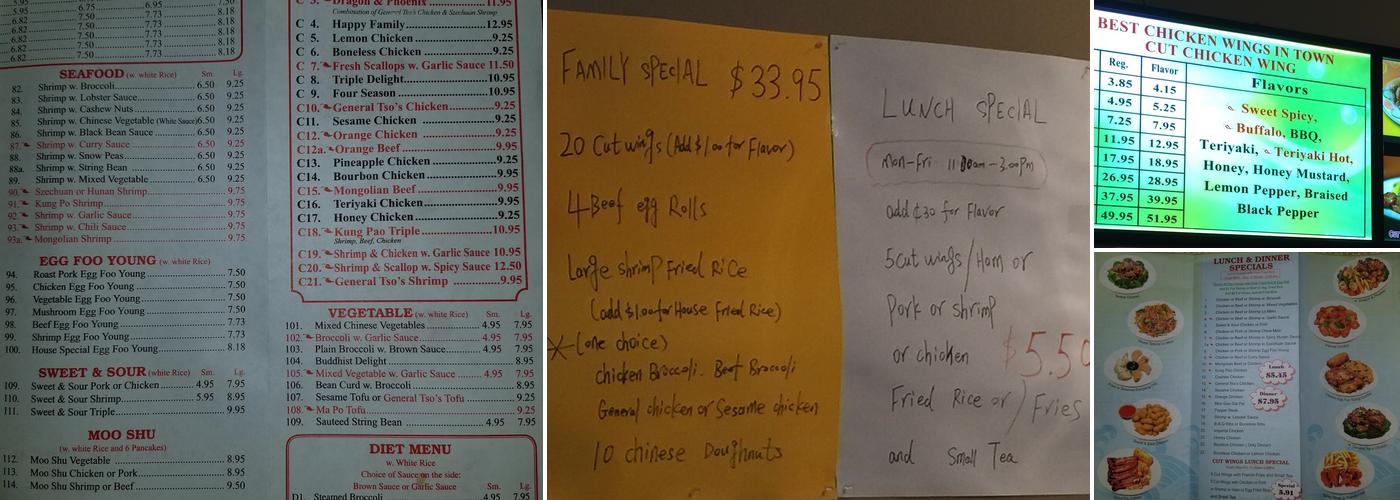 5.95 6.75 6.95 7.50
6.82 7.50 7.73 8.18
6.82 7.50 7.73 8.18
6.82 7.50 7.73 8.18
6.82 7.50 7.73 8.18
SEAFOOD (w. white Rice) Sm. Lg.
82. Shrimp w. Broccoli 6.50 9.25
83. Shrimp w. Lobster Sauce 6.50 9.25
84. Shrimp w. Cashew Nuts 6.50 9.25
85. Shrimp w. Chinese Vegetable (White Sauce) 6.50 9.25
86. Shrimp w. Black Bean Sauce 6.50 9.25
87. Shrimp w. Curry Sauce 6.50 9.25
88. Shrimp w. Snow Peas 6.50 9.25
88a. Shrimp w. String Bean 6.50 9.25
89. Shrimp w. Mixed Vegetable 6.50 9.25
90. Szechuan or Hunan Shrimp 9.75
91. Kung Po Shrimp 9.75
92. Shrimp w. Garlic Sauce 9.75
93. Shrimp w. Chili Sauce 9.75
93a. Mongolian Shrimp 9.75
EGG FOO YOUNG (w. white Rice)
94. Roast Pork Egg Foo Young 7.50
95. Chicken Egg Foo Young 7.50
96. Vegetable Egg Foo Young 7.50
97. Mushroom Egg Foo Young 7.50
98. Beef Egg Foo Young 7.73
99. Shrimp Egg Foo Young 7.73
100. House Special Egg Foo Young 8.18
SWEET & SOUR (w. white Rice) Sm. Lg.
109. Sweet & Sour Pork or Chicken 4.95 7.95
110. Sweet & Sour Shrimp 5.95 8.95
111. Sweet & Sour Triple 9.95
MOO SHU
(w. white Rice and 6 Pancakes)
112. Moo Shu Vegetable 8.95
113. Moo Shu Chicken or Pork 8.95
114. Moo Shu Shrimp or Beef 9.50
C 3. Dragon & Phoenix 11.95
Combination of General Tso's Chicken & Szechuan Shrimp
C 4. Happy Family 12.95
C 5. Lemon Chicken 9.25
C 6. Boneless Chicken 9.25
C 7. Fresh Scallops w. Garlic Sauce 11.50
C 8. Triple Delight 10.95
C 9. Four Season 10.95
C10. General Tso's Chicken 9.25
C11. Sesame Chicken 9.25
C12. Orange Chicken 9.25
C12a. Orange Beef 9.95
C13. Pineapple Chicken 9.25
C14. Bourbon Chicken 9.25
C15. Mongolian Beef 9.95
C16. Teriyaki Chicken 9.95
C17. Honey Chicken 9.25
C18. Kung Pao Triple 10.95
Shrimp, Beef, Chicken
C19. Shrimp & Chicken w. Garlic Sauce 10.95
C20. Shrimp & Scallop w. Spicy Sauce 12.50
C21. General Tso's Shrimp 9.95
VEGETABLE (w. white Rice) Sm. Lg.
101. Mixed Chinese Vegetables 4.95 7.95
102. Broccoli w. Garlic Sauce 4.95 7.95
103. Plain Broccoli w. Brown Sauce 4.95 7.95
104. Buddhist Delight 8.95
105. Mixed Vegetable w. Garlic Sauce 4.95 7.95
106. Bean Curd w. Broccoli 8.95
107. Sesame Tofu or General Tso's Tofu 9.25
108. Ma Po Tofu 9.25
109. Sauteed String Bean 4.95 7.95
DIET MENU
w. White Rice
Choice of Sauce on the side:
Brown Sauce or Garlic Sauce Sm. Lg.
D1. Steamed Broccoli 4.95 7.95
FAMILY SPECIAL $33.95
20 Cut wings (Add $1.00 for Flavor)
4 Beef egg Rolls
Large shrimp Fried Rice
(add $1.00 for House Fried Rice)
(one choice)
chicken Broccoli. Beef Broccoli
General chicken or Sesame chicken
10 chinese Doughnuts
LUNCH SPECIAL
Mon-Fri 11:00am-3:00pm
add ¢30 for Flavor
5 cut wings/Ham or
Pork or shrimp
or chicken $5.50
Fried Rice or / Fries
and Small Tea
BEST CHICKEN WINGS IN TOWN
CUT CHICKEN WING
Reg. Flavor Flavors
3.85 4.15
4.95 5.25
7.25 7.95
11.95 12.95
17.95 18.95
26.95 28.95
37.95 39.95
49.95 51.95
Sweet Spicy,
Buffalo, BBQ,
Teriyaki, Teriyaki Hot,
Honey, Honey Mustard,
Lemon Pepper, Braised
Black Pepper
LUNCH & DINNER
SPECIALS
Lunch
$5.45
Dinner
$7.95
CUT WINGS LUNCH SPECIAL
Special
5.91